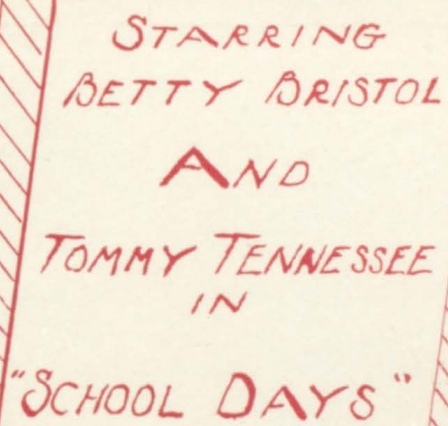 STARRING
BETTY BRISTOL
AND
TOMMY TENNESSEE
IN
"SCHOOL DAYS"